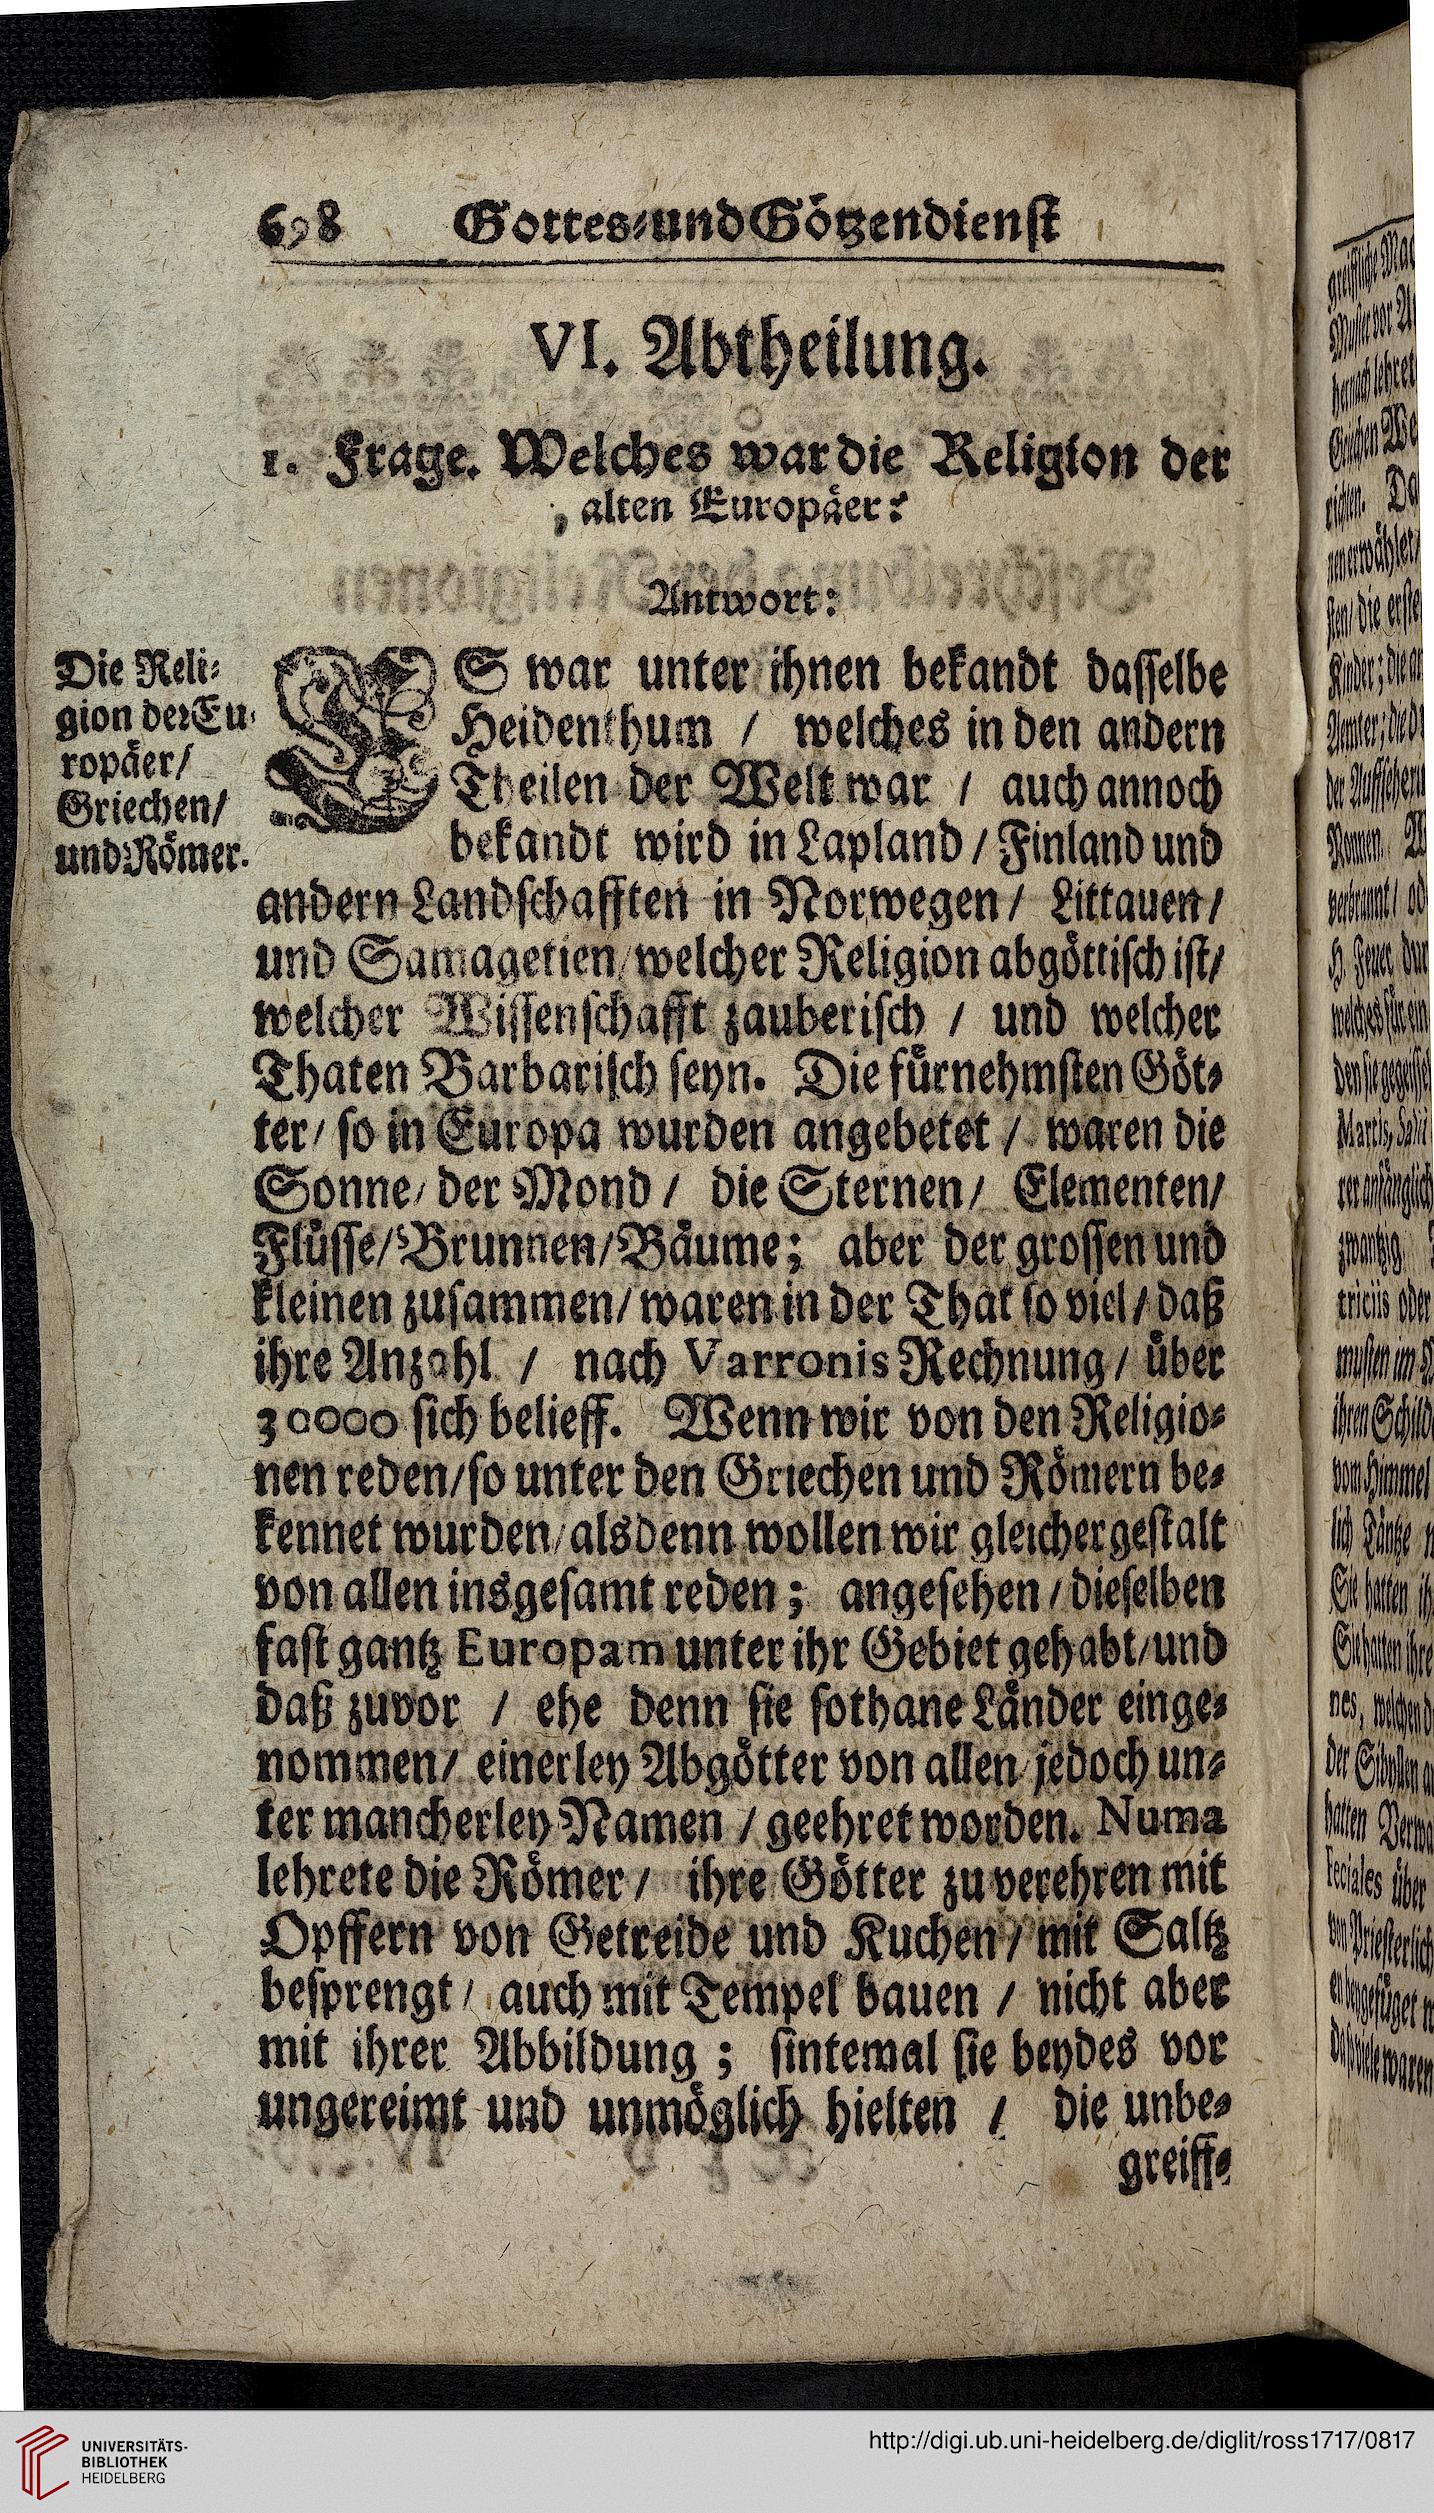 698 Gottes-und Götzendienst
VI. Abtheilung.
1. Frage. Welches war die Religion der
alten Europäer?
Antwort:
Die Reli-
gion der Eu-
ropäer/
Griechen/
und Römer.
ES war unter ihnen bekandt dasselbe
Heidenthum / welches in den andern
Theilen der Welt war / auch annoch
bekandt wird in Lapland / Finland und
andern Landschafften in Norwegen / Littauen /
und Samagetien / welcher Religion abgöttisch ist /
welcher Wissenschafft zauberisch / und welcher
Thaten Barbarisch seyn. Die fürnehmsten Göt-
ter / so in Europa wurden angebetet / waren die
Sonne / der Mond / die Sternen / Elementen /
Flüsse / Brunnen / Bäume; aber der grossen und
kleinen zusammen / waren in der That so viel / daß
ihre Anzahl / nach Varronis Rechnung / über
30000 sich belieff. Wenn wir von den Religio-
nen reden / so unter den Griechen und Römern be-
kennet wurden / alsdenn wollen wir gleicher gestalt
von allen insgesamt reden; angesehen / dieselben
fast gantz Europam unter ihr Gebiet gehabt / und
daß zuvor / ehe denn sie sothane Länder einge-
nommen / einerley Abgötter von allen / jedoch un-
ter mancherley Namen / geehret worden. Numa
lehrete die Römer / ihre Götter zu verehren mit
Opffern von Getreide und Kuchen / mit Saltz
besprengt / auch mit Tempel bauen / nicht aber
mit ihrer Abbildung; sintemal sie beydes vor
ungereimt und unmöglich hielten / die unbe-
greiff-
UNIVERSITÄTS-
BIBLIOTHEK
HEIDELBERG
http://digi.ub.uni-heidelberg.de/diglit/ross1717/0817